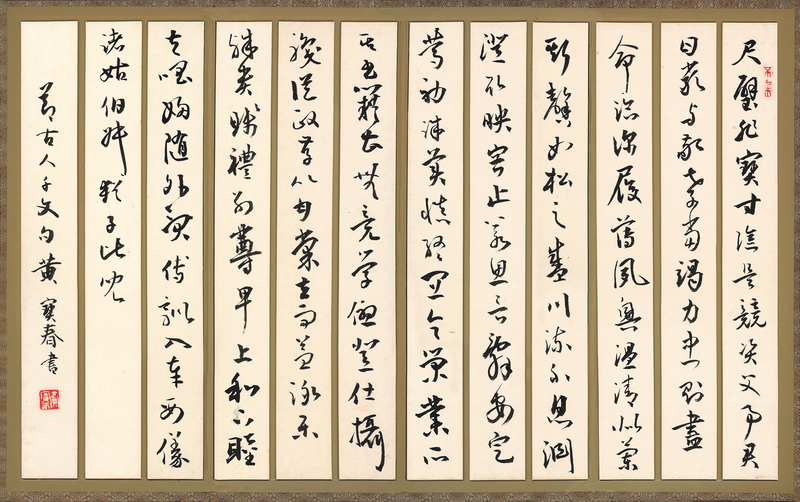 尺璧非寶寸陰是競資父事君
曰嚴與敬孝當竭力忠則盡
命臨深履薄夙興溫清似蘭
斯馨如松之盛川流不息淵
澄取映容止若思言辭安定
篤初誠美慎終宜令榮業所
基籍甚無竟學優登仕攝
職從政存以甘棠去而益詠樂
殊貴賤禮別尊卑上和下睦
夫唱婦隨外受傅訓入奉母儀
諸姑伯叔猶子比兒
節古人千文句黃寶春書